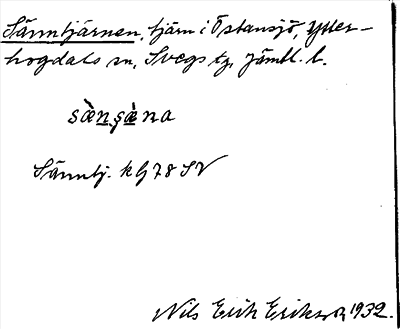 Sänntjärnen, tjärn i Östansjö, Ytter-
hogdals sn, Svegs tg, Jämtl. l.
sæ̀nṣæ̀na
Sänntj. kG 78 SV
Nils Erik Eriksson 1932.